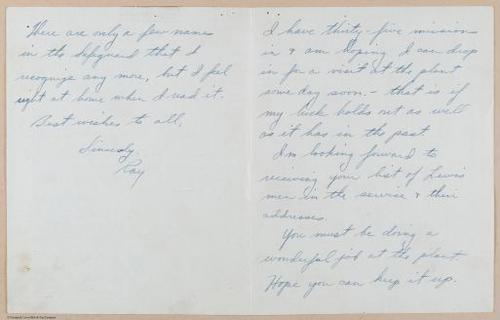 I have thirty-five missions
in & am hoping I can drop
in for a visit at the plant
some day soon - that is if
my luck holds out as well
as it has in the past.
I'm looking forward to
receiving your list of Lewis
men in the service & their
addresses.
You must be doing a
wonderful job at the plant.
Hope you can keep it up.
There are only a few names
in the Safeguard that I
recognize any more, but I feel
right at home when I read it.
Best wishes to all,
Sincerely,
Ray